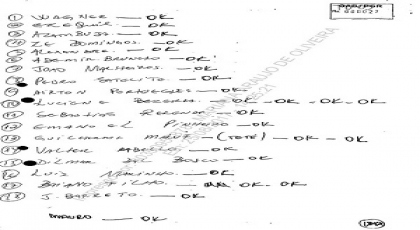 ① WAGNER — OK
② EZEQUIEL — OK
③ AZAMBUJA — OK
④ ZE DOMINGOS — OK
⑤ — OK
⑥ ADEMIR BRUNETTO — OK
⑦ JOÃO MALHEIROS — OK
⑧ PEDRO SATELITE — OK
⑨ AIRTON PORTUGUES — OK
⑩ LUCIANE BEZERRA — OK — OK — OK — OK
⑪ SEBASTIÃO REZENDE — OK
⑫ EMANUEL PINHEIRO — OK
⑬ GUILHERME MALUF — (TETÉ) — OK — OK
⑭ VALTER RABELLO — OK
⑮ DILMAR DAL BOSCO — OK
⑯ LUIZ MARINHO — OK
⑰ BAIANO FILHO — OK — OK
⑱ J. BARRETO — OK
— OK
ARAUJO DE OLIVEIRA